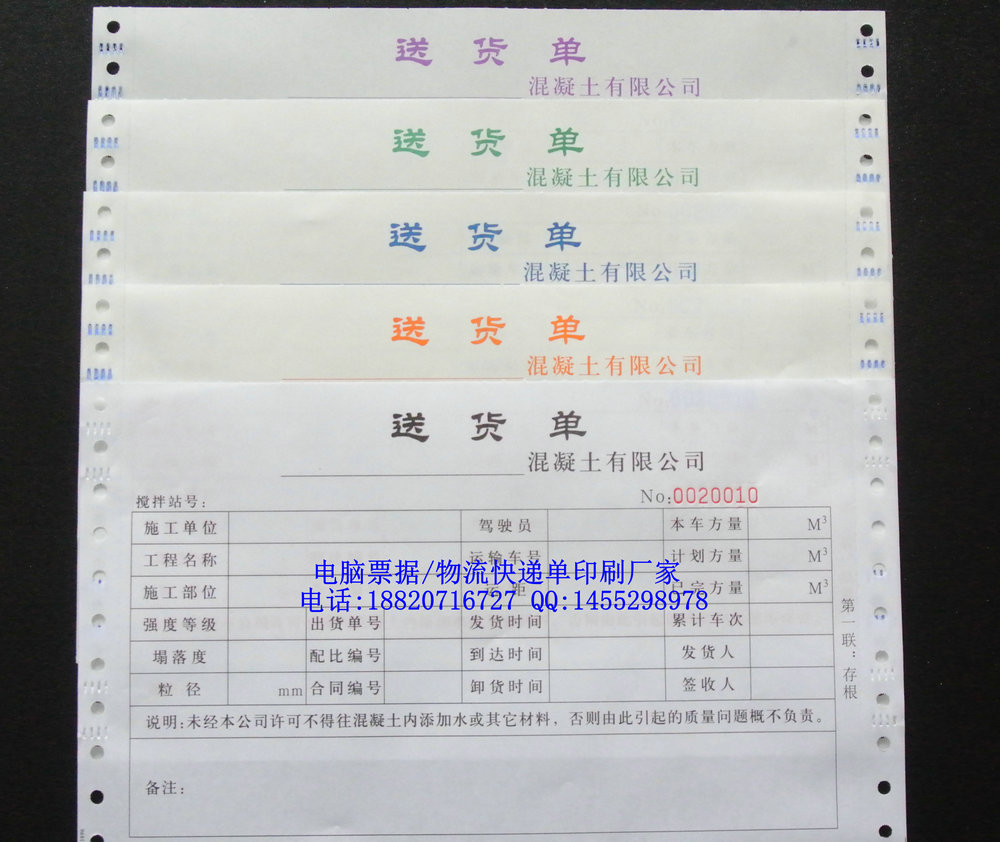 送 货 单
混凝土有限公司
送 货 单
混凝土有限公司
送 货 单
混凝土有限公司
送 货 单
混凝土有限公司
送 货 单
混凝土有限公司
搅拌站号: No:0020010
施工单位 驾驶员 本车方量 M³
工程名称 运输车号 计划方量 M³
电脑票据/物流快递单印刷厂家
施工部位 运距 已完方量 M³
电话:18820716727 QQ:1455298978
强度等级 出货单号 发货时间 累计车次
塌落度 配比编号 到达时间 发货人
粒径 mm 合同编号 卸货时间 签收人
说明:未经本公司许可不得往混凝土内添加水或其它材料，否则由此引起的质量问题概不负责。
备注:
第一联：存根